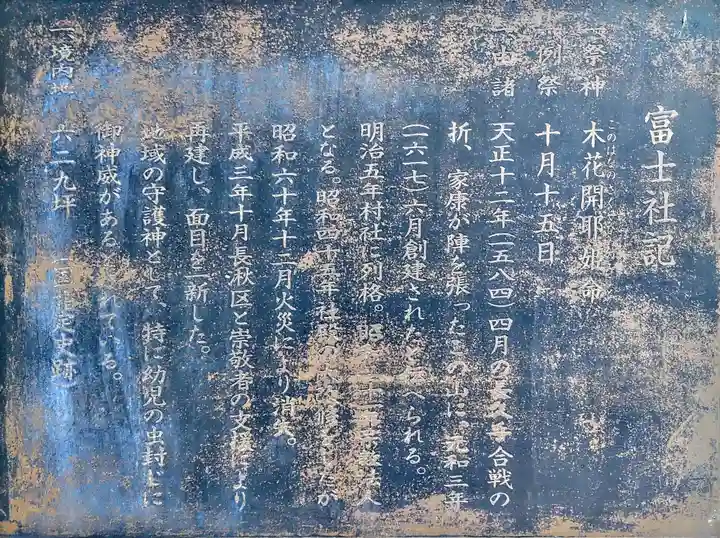 富士社記
一祭神 木花開耶姫命
このはなの
一例祭 十月十五日
一由諸 天正十二年(一五八四)四月の長久手合戦の
折、家康が陣を張ったこの山に。元和三年
(一六一七)六月創建されたと伝へられる。
明治五年村社に列格。昭和二十一年宗教法人
となる。昭和四十五年社殿の大修をしたが
昭和六十年十二月火災により消失。
平成三年十月長湫区と崇敬者の支援により
再建し、面目を一新した。
地域の守護神として、特に幼児の虫封じに
御神威があるとされている。
一境内地 六二九坪 (国指定史跡)